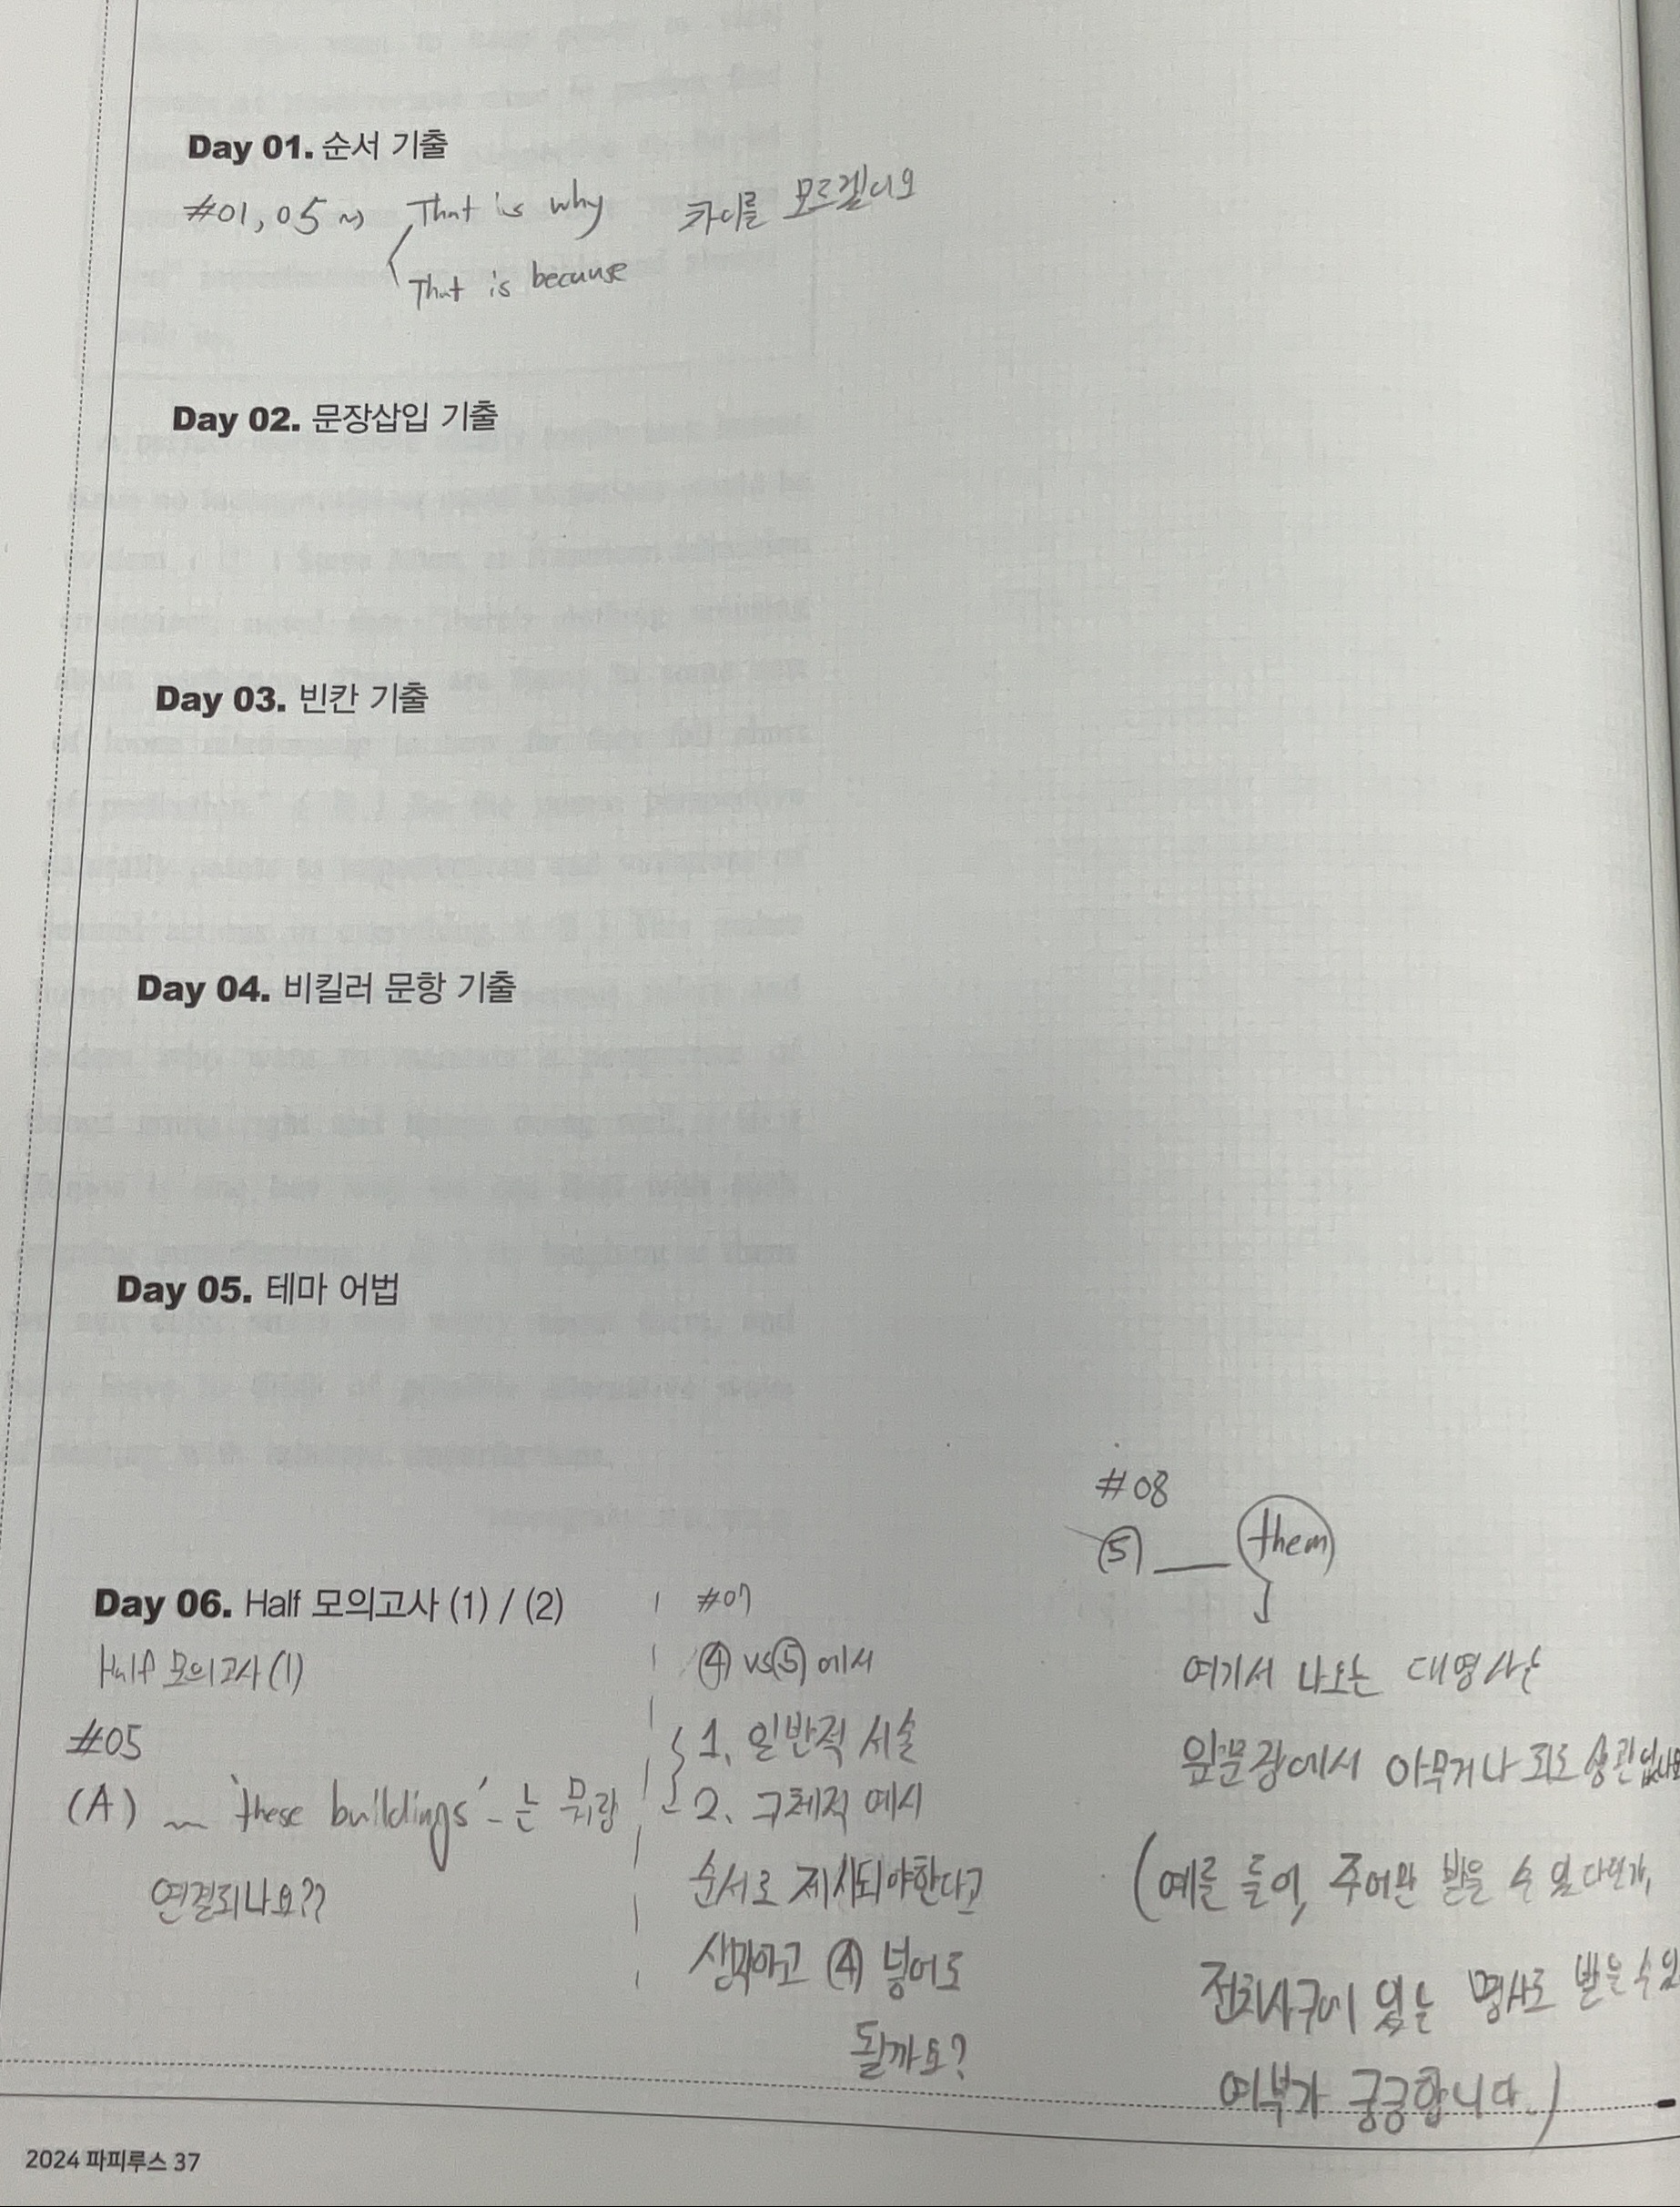 Day 01. 순서 기출
#01, 05 ~> That is why 차이를 모르겠어요
That is because
Day 02. 문장삽입 기출
Day 03. 빈칸 기출
Day 04. 비킬러 문항 기출
Day 05. 테마 어법
Day 06. Half 모의고사 (1) / (2)
Half 모의고사 (1)
#05
(A) ~ 'these buildings' - 는 뭐랑
연결되나요??
#07
④ vs ⑤ 에서
1. 일반적 서술
2. 구체적 예시
순서로 제시되야한다고
생각하고 ④ 넣어도
될까요?
#08
⑤ ___ them
여기서 나오는 대명사는
앞문장에서 아무거나 되도 상관없나요
(예를 들어, 주어만 받을 수 있다던가,
전치사구에 있는 명사도 받을 수 있
여부가 궁금합니다.)
2024 파피루스 37